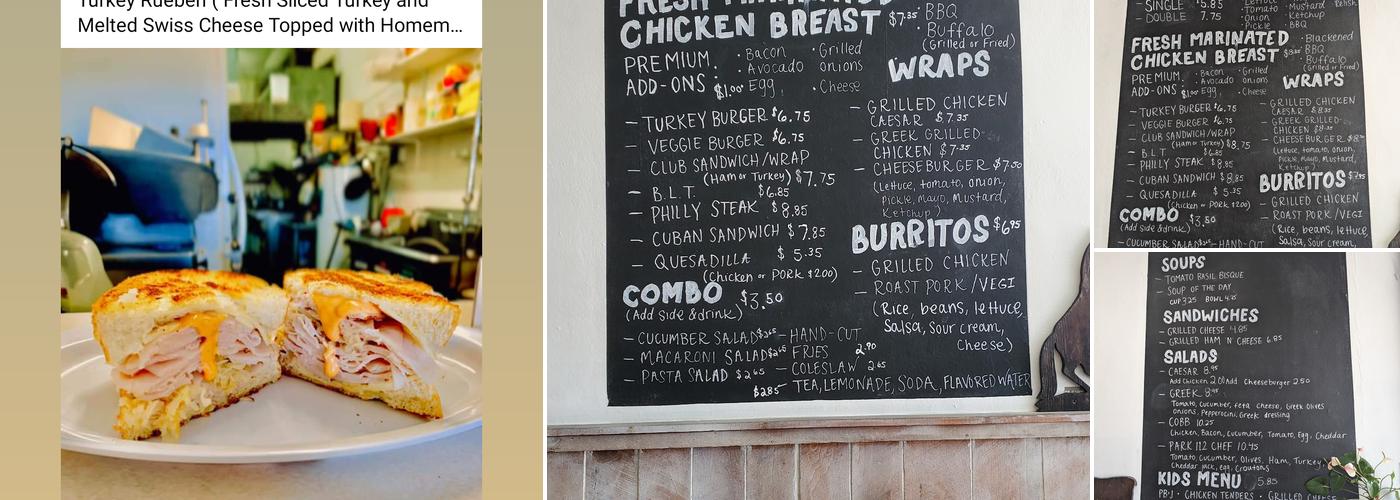 Turkey Rueben ( Fresh Sliced Turkey and
Melted Swiss Cheese Topped with Homem...
FRESH MARINATED
CHICKEN BREAST $7.35
· BBQ
· Buffalo
(Grilled or Fried)
PREMIUM
ADD-ONS : $1.00
· Bacon
· Avocado
· Egg
· Grilled
onions
· Cheese
- TURKEY BURGER $6.75
- VEGGIE BURGER $6.75
- CLUB SANDWICH/WRAP
(Ham or Turkey) $7.75
- B.L.T. $6.85
- PHILLY STEAK $8.85
- CUBAN SANDWICH $7.85
- QUESADILLA $5.35
(Chicken or PORK $2.00)
COMBO $3.50
(Add side & drink)
- CUCUMBER SALAD
- MACARONI SALAD
- PASTA SALAD $2.65
- HAND-CUT
FRIES 2.90
- COLESLAW 2.65
$2.85 - TEA, LEMONADE, SODA, FLAVORED WATER
WRAPS
- GRILLED CHICKEN
CAESAR $7.35
- GREEK GRILLED
CHICKEN $7.35
- CHEESEBURGER $7.50
(Lettuce, tomato, onion,
Pickle, Mayo, Mustard,
Ketchup)
BURRITOS $6.95
- GRILLED CHICKEN
- ROAST PORK/VEGI
(Rice, beans, lettuce,
Salsa, Sour cream,
Cheese)
- SINGLE $5.85
- DOUBLE 7.75
· Lettuce
· Tomato
· Onion
· Pickle
· Mustard
· Ketchup
· BBQ
Relish
FRESH MARINATED
CHICKEN BREAST
· Blackened
· BBQ
· Buffalo
(Grilled or Fried)
PREMIUM
ADD-ONS : $1.00
· Bacon
· Avocado
· Egg
· Grilled
onions
· Cheese
- TURKEY BURGER $6.75
- VEGGIE BURGER $6.75
- CLUB SANDWICH/WRAP
(Ham or Turkey) $8.75
- B.L.T. $6.85
- PHILLY STEAK $8.85
- CUBAN SANDWICH $8.85
- QUESADILLA $5.35
(Chicken or PORK $2.00)
COMBO $3.50
(Add side & drink)
- CUCUMBER SALAD
- HAND-CUT
WRAPS
- GRILLED CHICKEN
CAESAR $8.35
- GREEK GRILLED
CHICKEN
- CHEESEBURGER
(Lettuce, tomato, onion,
Pickle, Mayo, Mustard,
Ketchup)
BURRITOS $7.95
- GRILLED CHICKEN
- ROAST PORK/VEGI
(Rice, beans, lettuce,
Salsa, Sour cream,
SOUPS
- TOMATO BASIL BISQUE
- SOUP OF THE DAY
CUP 3.25 BOWL
SANDWICHES
- GRILLED CHEESE 4.85
- GRILLED HAM N' CHEESE 6.85
SALADS
- CAESAR 8.95
Add Chicken 2.00 Add Cheeseburger 2.50
- GREEK 8.95
Tomato, Cucumber, Feta Cheese, Greek Olives
Onions, Pepperocini, Greek dressing
- COBB 10.25
Chicken, Bacon, Cucumber, Tomato, Egg, Cheddar
- PARK 112 CHEF 10.45
Tomato, Cucumber, Olives, Ham, Turkey
Cheddar jack, egg, Croutons
KIDS MENU 5.85
PB·J · CHICKEN TENDERS · GRILLED CHEESE